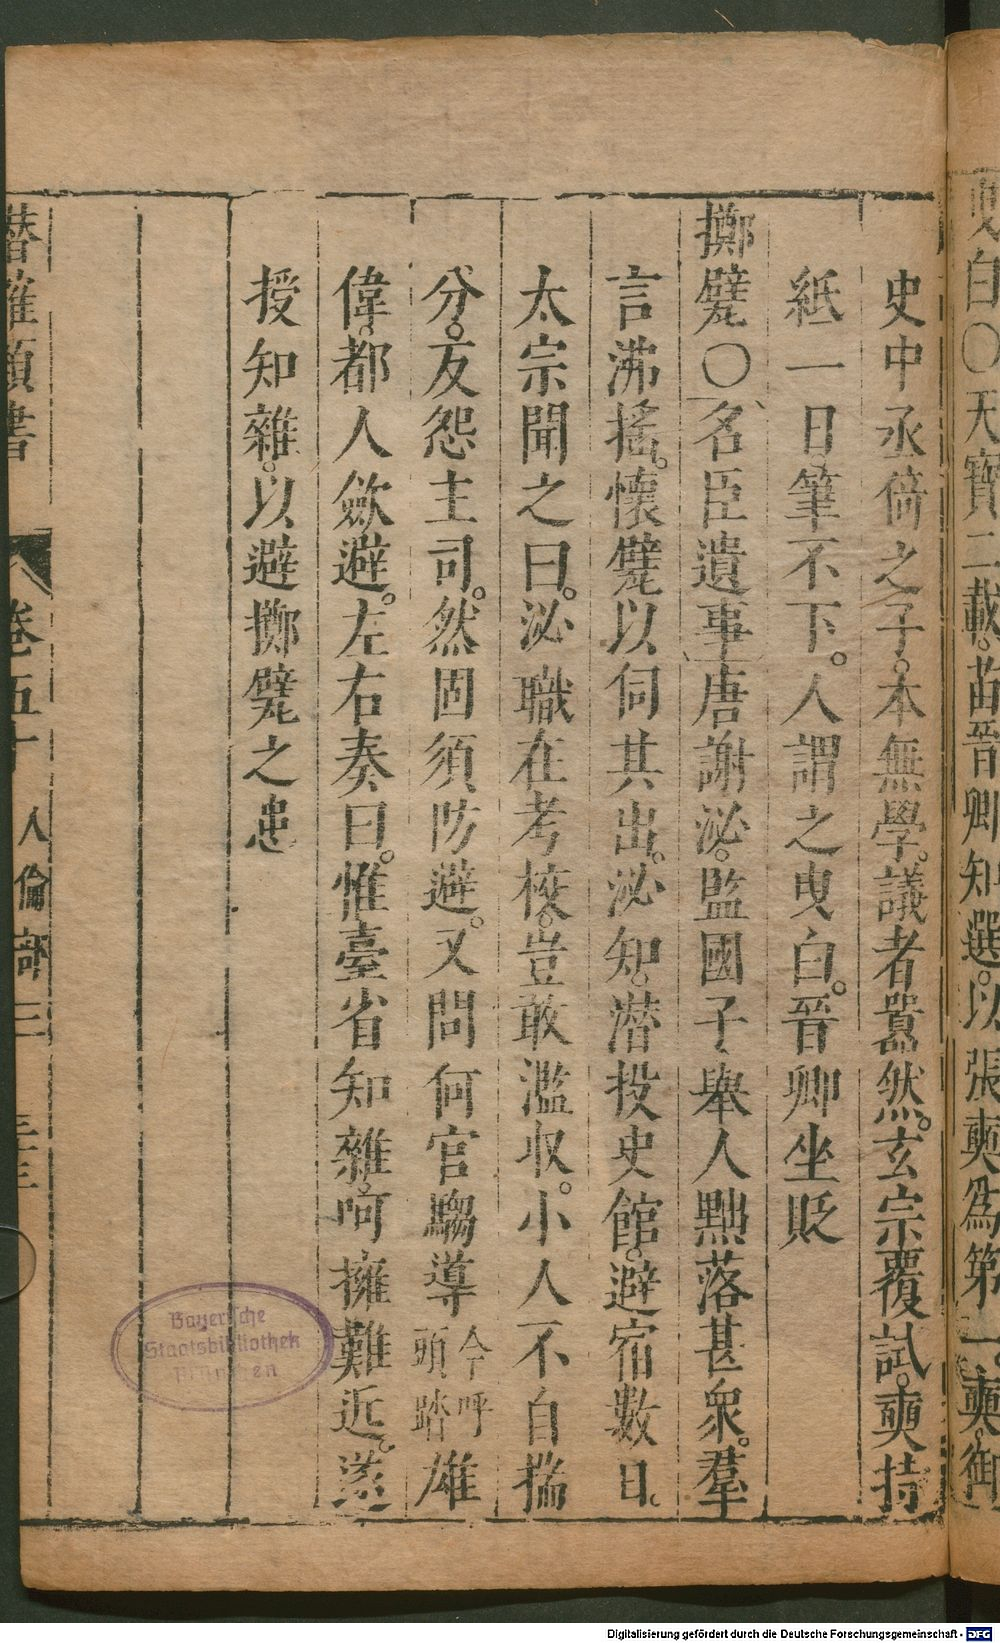 曳白〇天寶二載苗晉卿知選以張奭爲第一奭御
史中丞倚之子本無學議者囂然玄宗覆試奭持
紙一日筆不下人謂之曳白晉卿坐貶
擲甓〇名臣遺事唐謝泌監國子舉人黜落甚衆羣
言沸搖懷甓以伺其出泌知潛投史館避宿數日
太宗聞之曰泌職在考校豈敢濫収小人不自揣
分友怨主司然固須防避又問何官騶導今呼頭踏雄
偉都人歛避左右奏曰惟臺省知雜呵擁難近遂
授知雜以避擲甓之患
潛確類書 卷五十 人倫部三
Bayerische
Staatsbibliothek
München
Digitalisierung gefördert durch die Deutsche Forschungsgemeinschaft - DFG